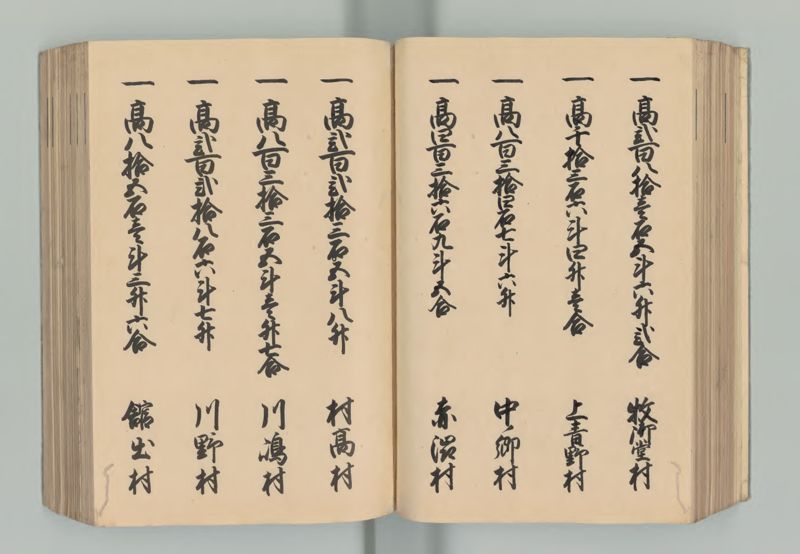 一高弐百八拾壱石五斗六升弐合 牧御堂村
一高千拾三石八斗四升壱合 上青野村
一高八百三拾四石七斗六升 中之郷村
一高四百三拾六石九斗五合 赤渋村
一高弐百弐拾三石五斗八升 村高村
一高八百三拾三石五斗壱升七合 川嶋村
一高弐百弐拾八石六斗七升 川野村
一高八拾五石壱斗三升六合 舘出村